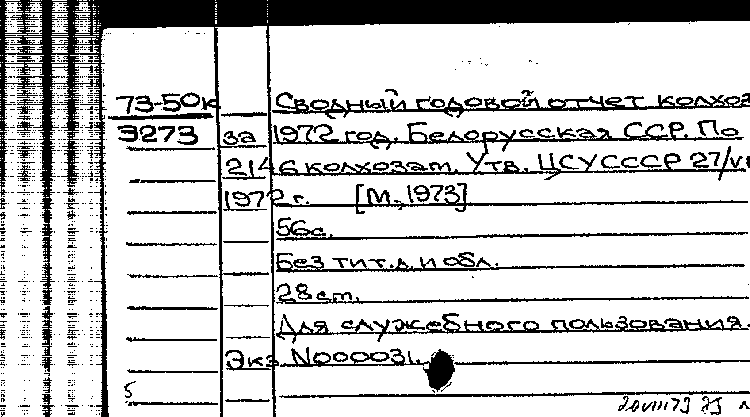 73-50к Сводный годовой отчет колхоз
3273 за 1972 год. Белорусская ССР. По
2146 колхозам. Утв. ЦСУ СССР 27/VI
1972 г. [М., 1973]
56с.
Без тит.л. и обл.
28 см.
Для служебного пользования.
Экз. N000031.
5